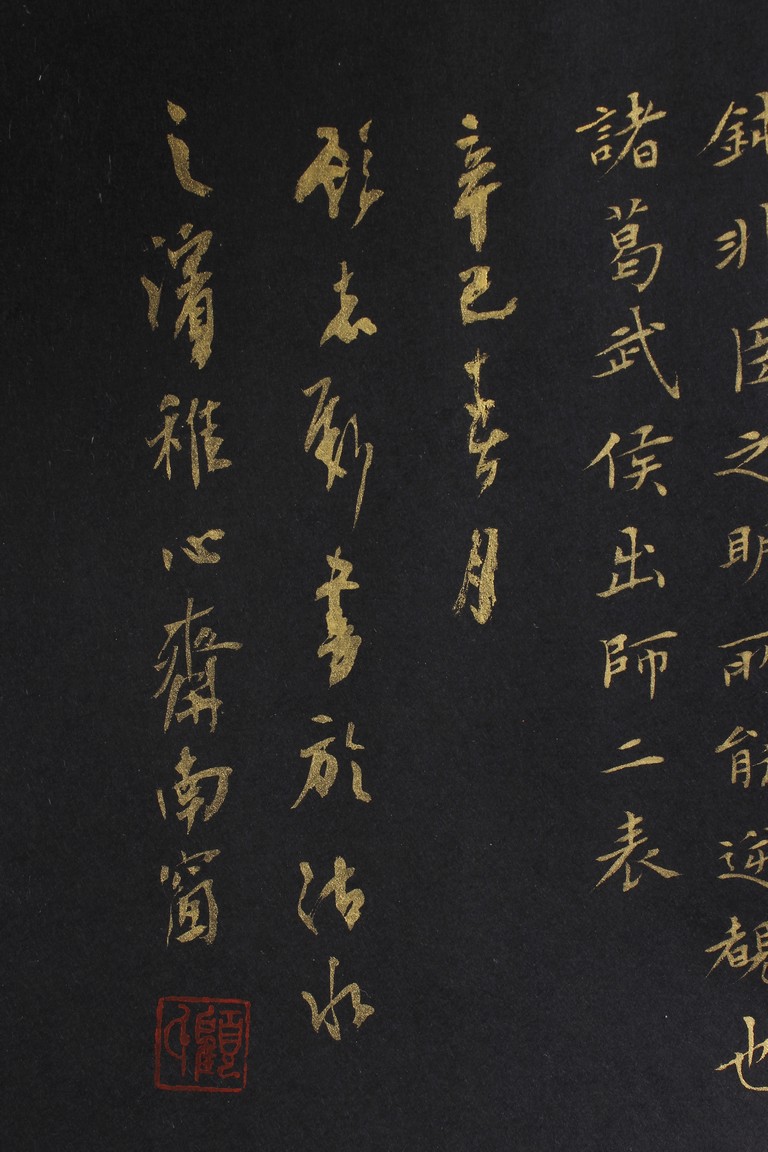 鈍非臣之明所能逆覩也
諸葛武侯出師二表
辛巳春月
顧志新書於沽水
之濱稚心齋南窗